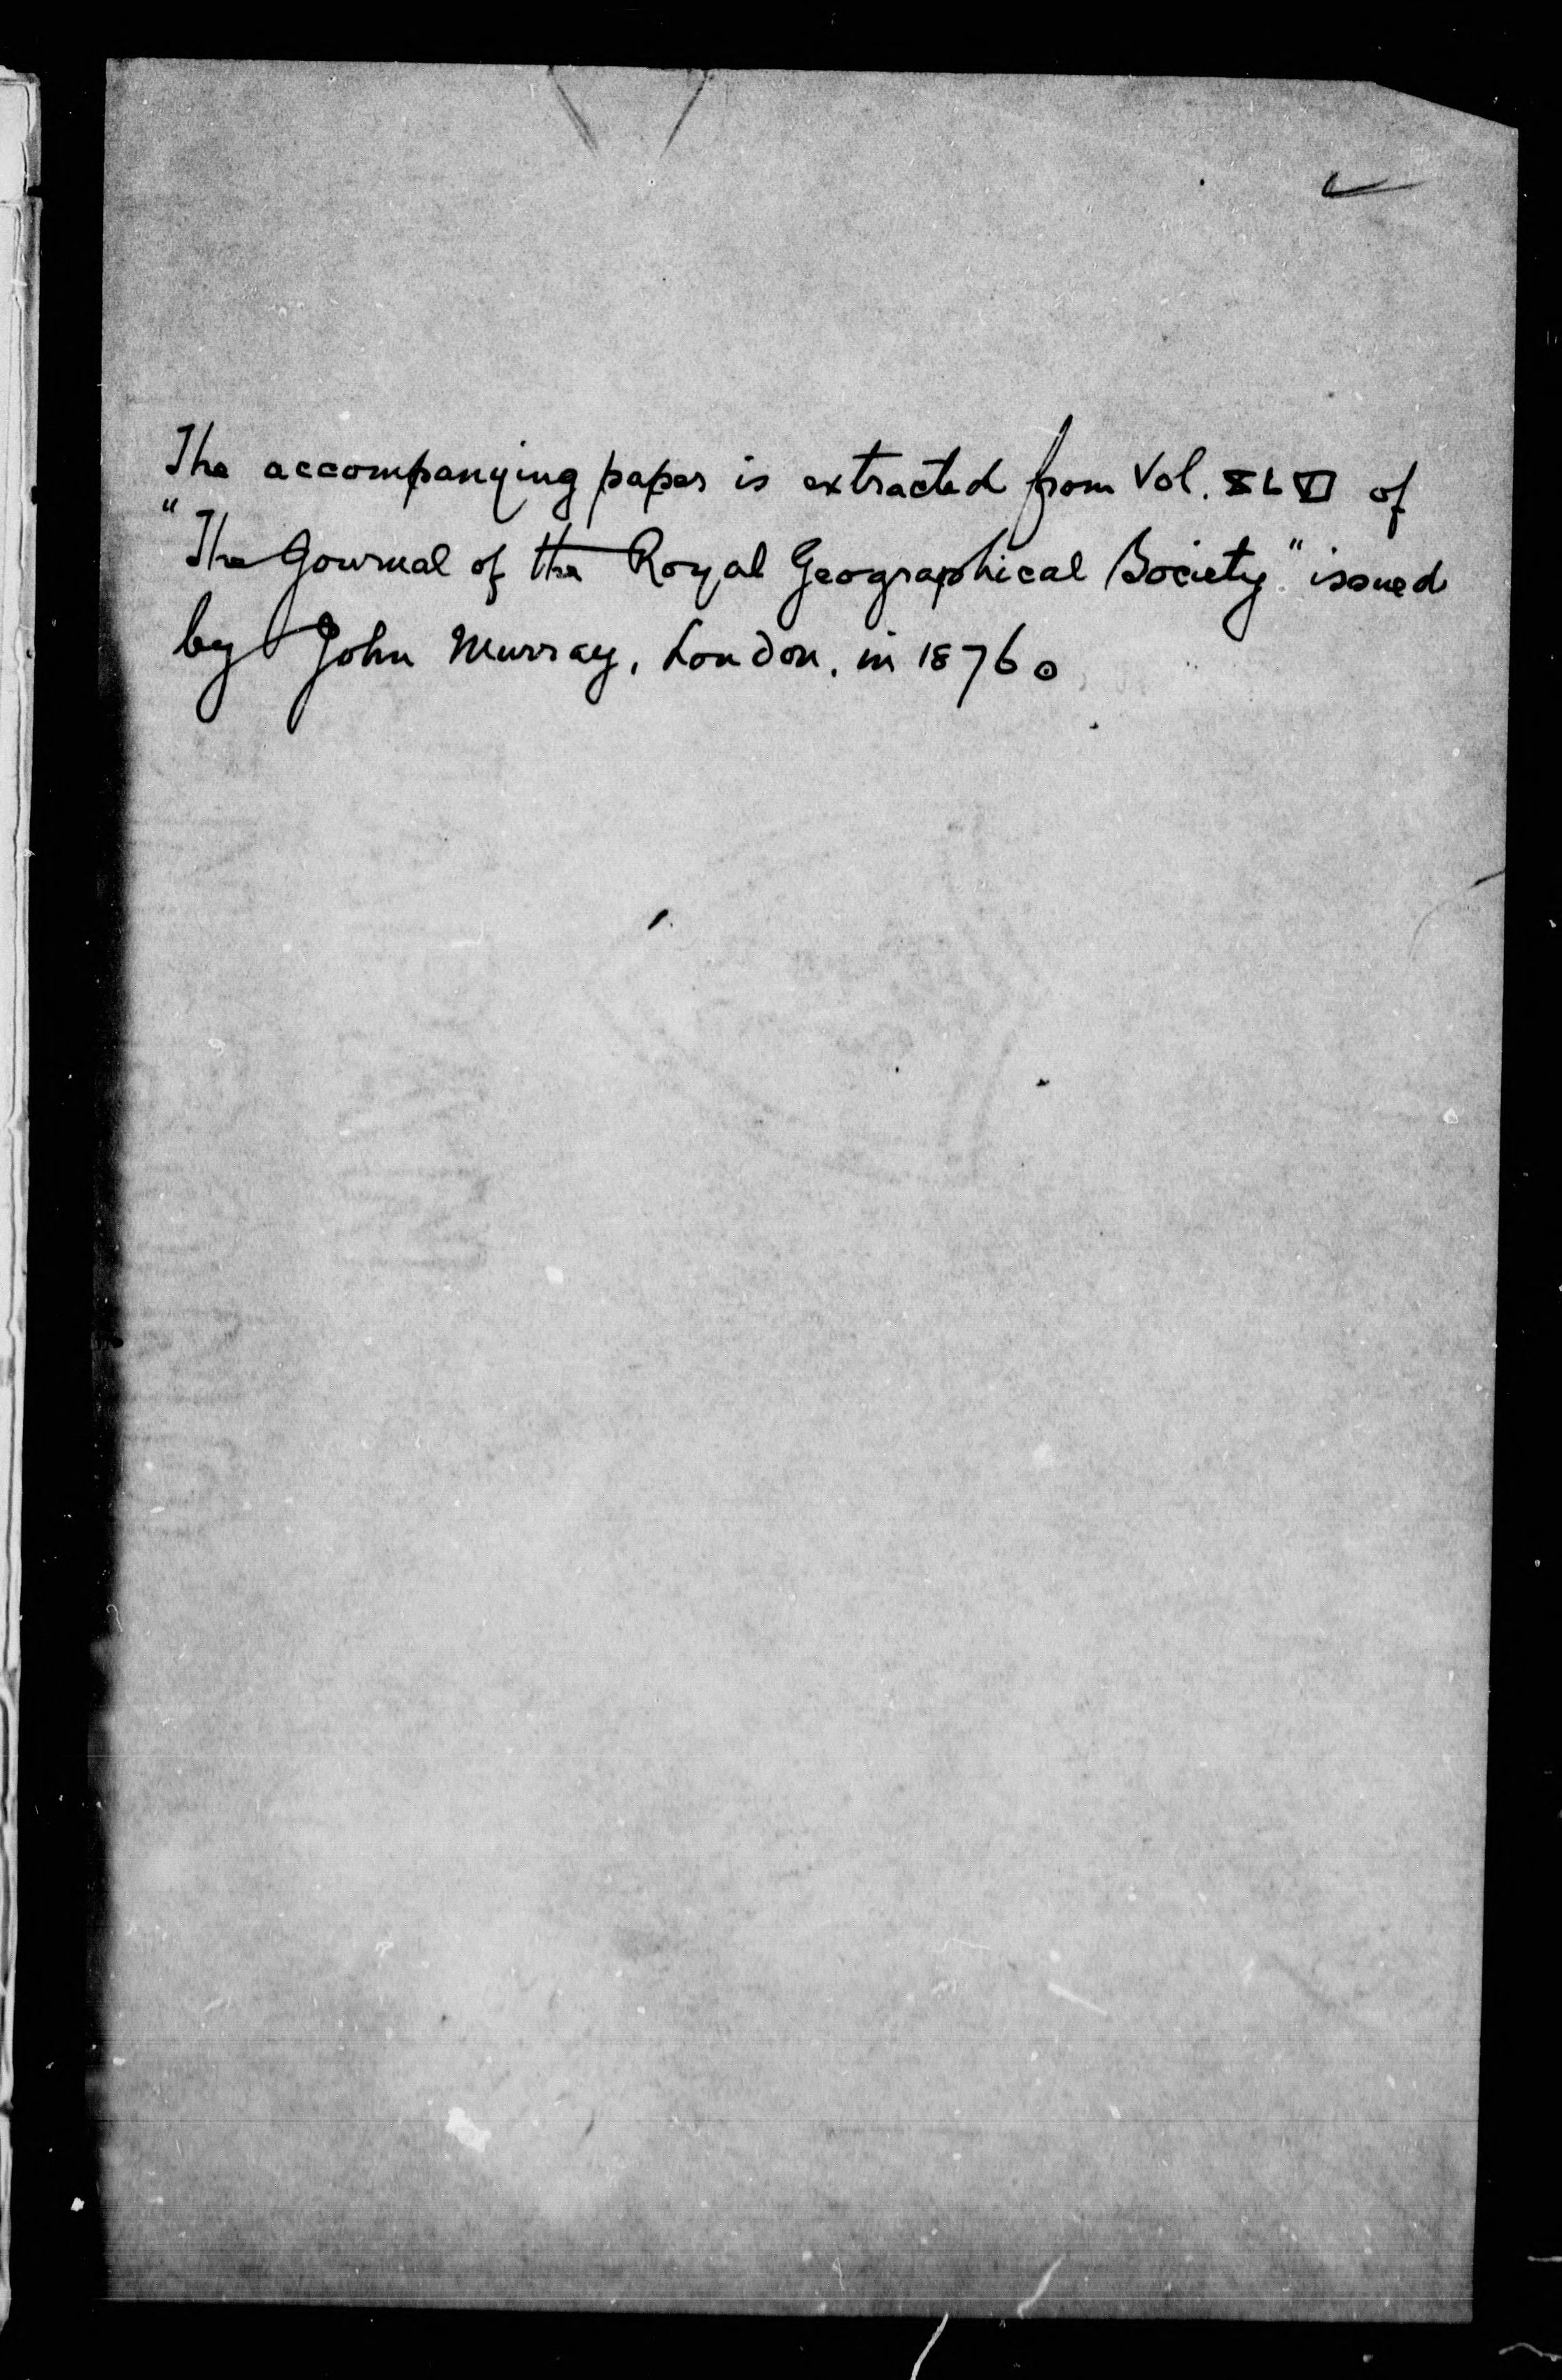 The accompanying paper is extracted from Vol. XLVI of
"The Journal of the Royal Geographical Society" issued
by John Murray, London, in 1876.